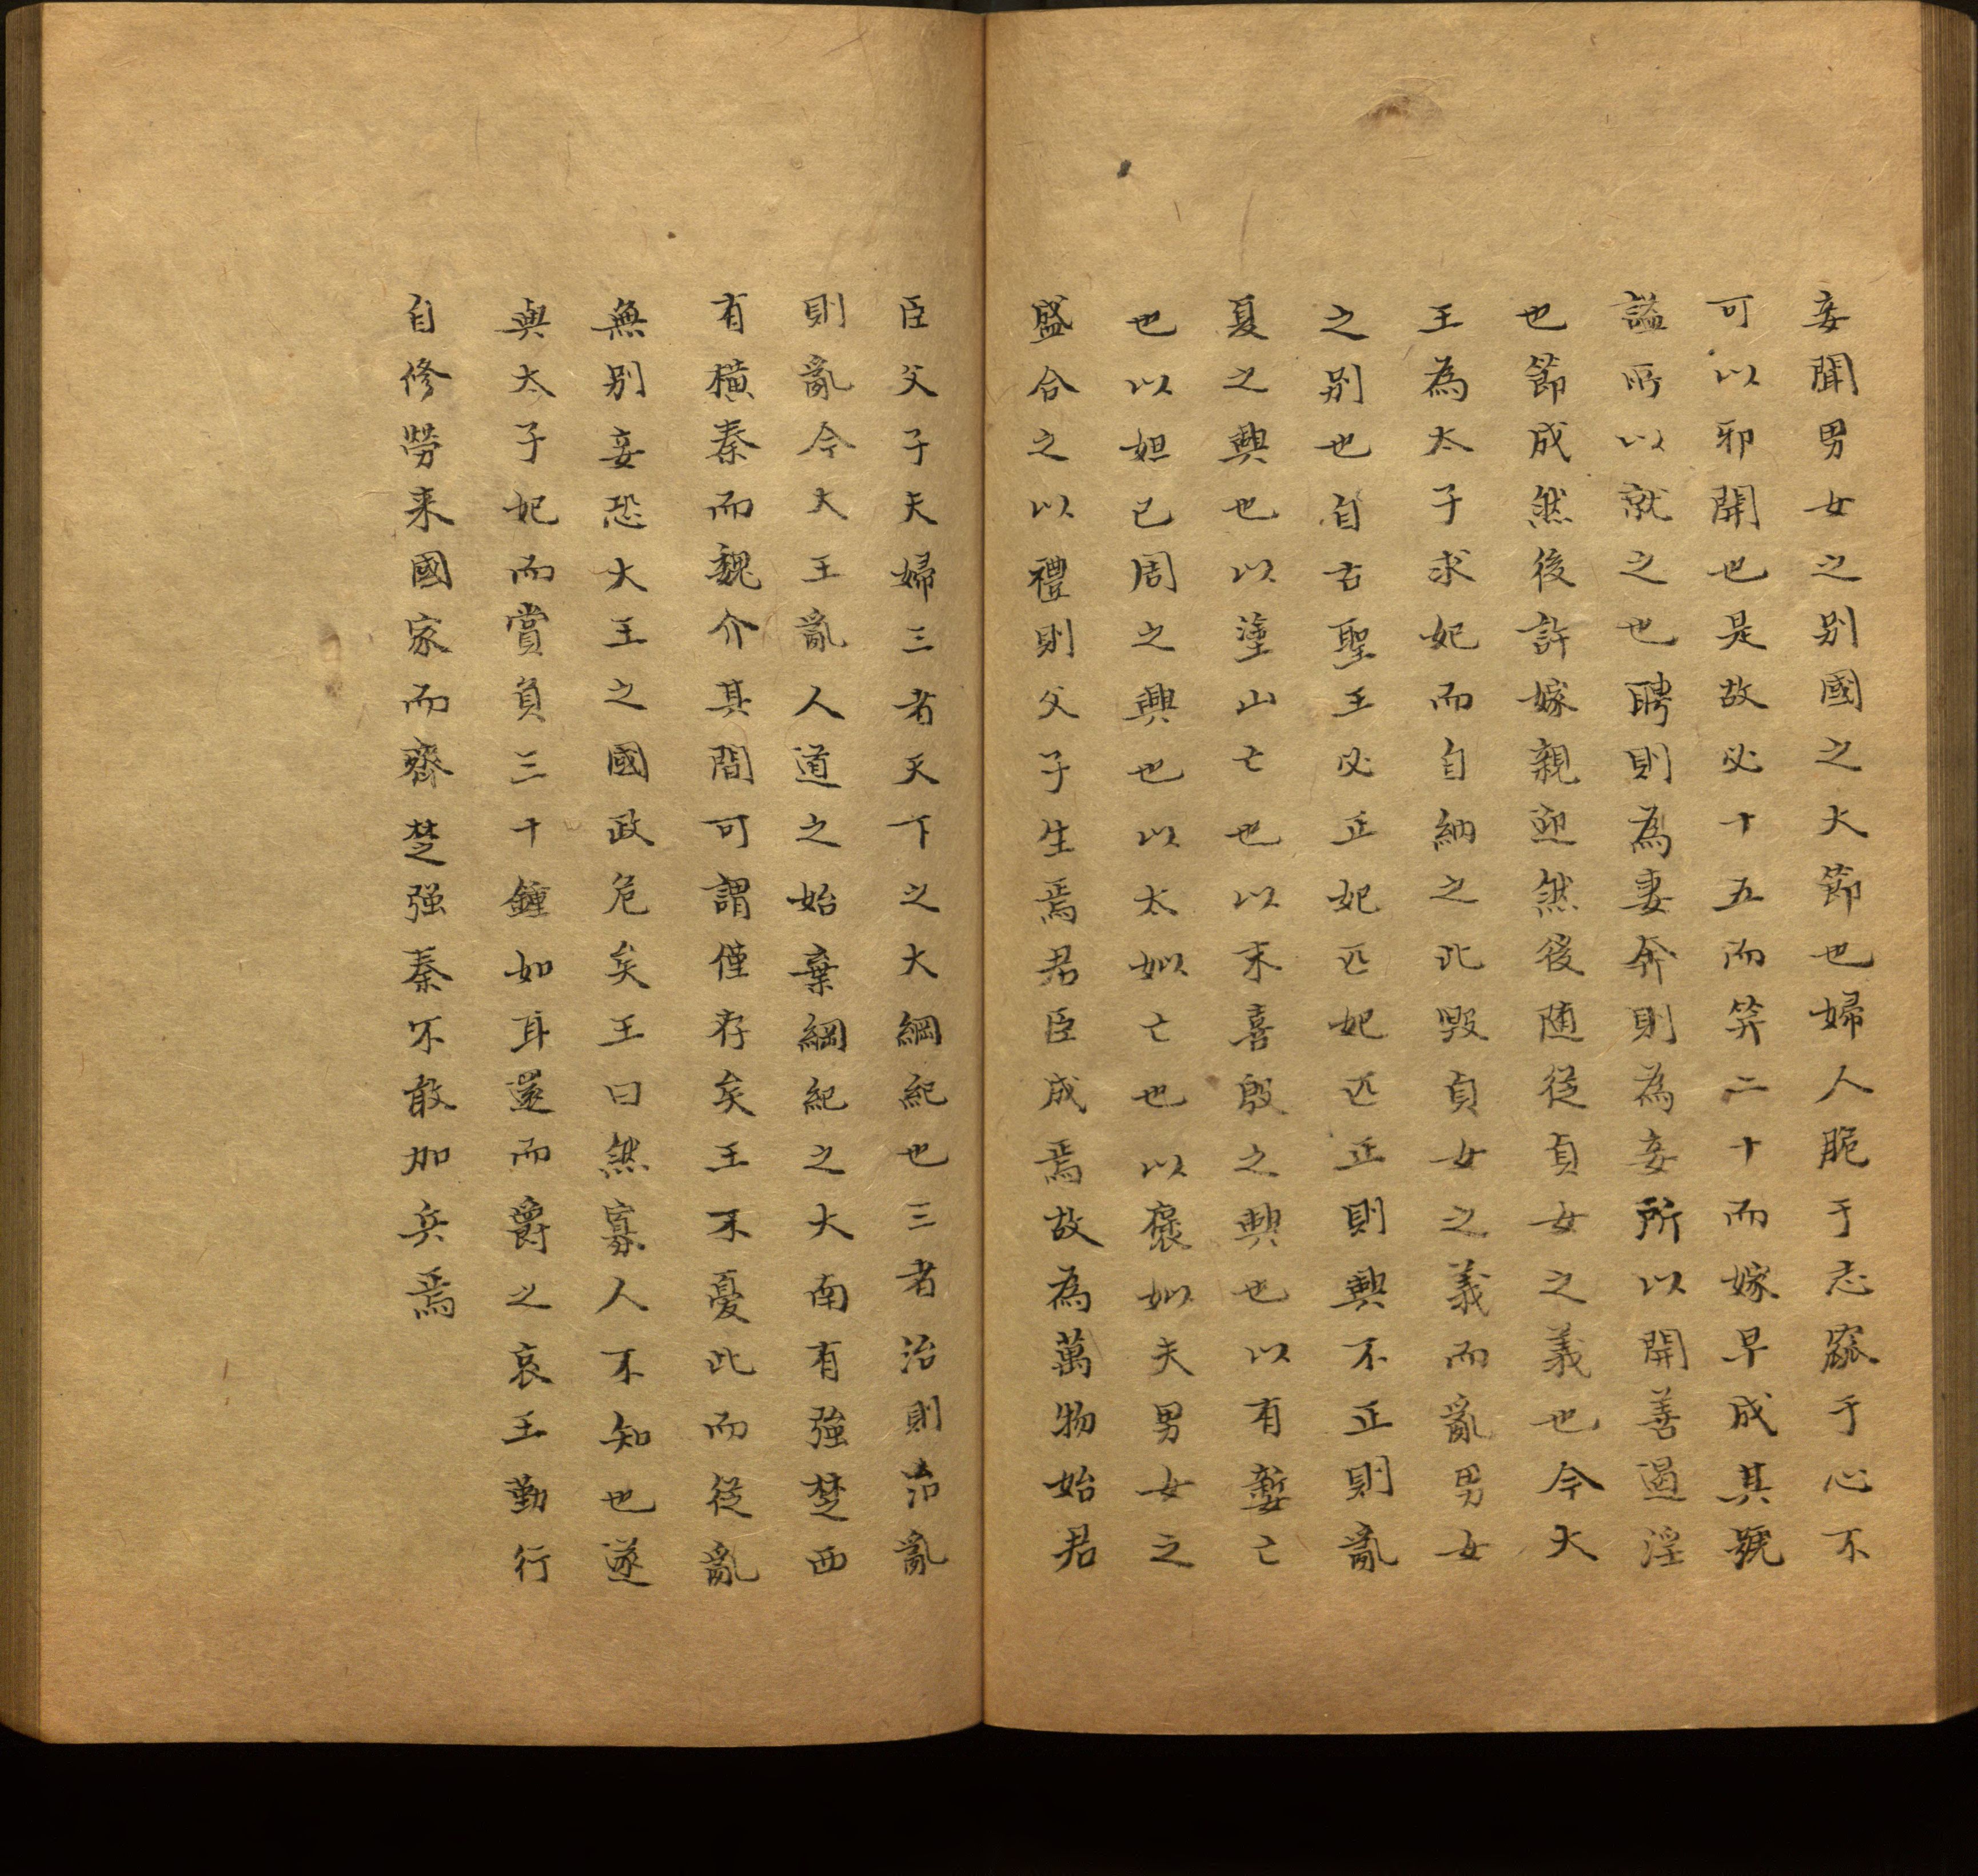 妾聞男女之别國之大節也婦人脆于志窳于心不
可以邪開也是故必十五而筓二十而嫁早成其號
謚所以就之也聘則為妻奔則為妾所以開善遏淫
也節成然後許嫁親迎然後随從貞女之義也今大
王為太子求妃而自納之此毀貞女之義而亂男女
之别也自古聖王必正妃匹妃匹正則興不正則亂
夏之興也以塗山亡也以末喜殷之興也以有㜪亡
也以妲己周之興也以太姒亡也以褒姒夫男女之
盛合之以禮則父子生焉君臣成焉故為萬物始君
臣父子夫婦三者天下之大綱紀也三者治則治亂
則亂今大王亂人道之始棄綱紀之大南有強楚西
有横秦而魏介其間可謂僅存矣王不憂此而從亂
無别妾恐大王之國政危矣王曰然寡人不知也遂
與太子妃而賞負三十鍾如耳還而爵之哀王勤行
自修勞来國家而齊楚强秦不敢加兵焉